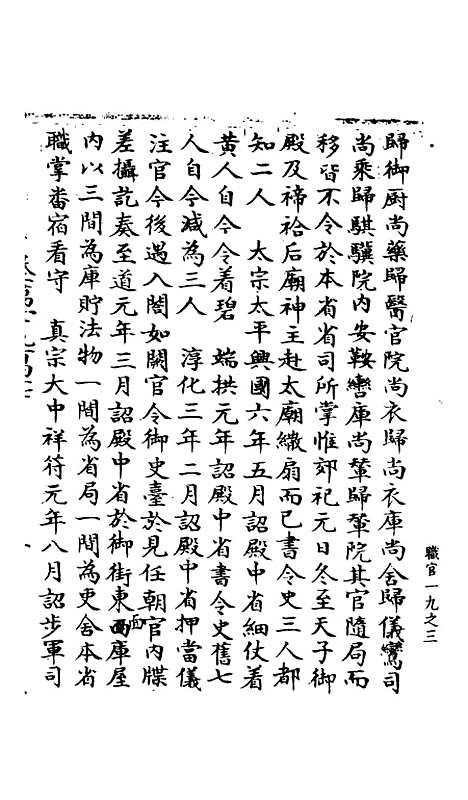 歸御厨尚藥歸醫官院尚衣歸尚衣庫尚舍歸儀鸞司
尚乘歸騏驥院内安鞍轡庫尚輦歸輦院其官隨局而
移皆不令於本省省司所掌惟郊祀元日冬至天子御
殿及禘祫后廟神主赴太廟繖扇而已書令史三人都
知二人　太宗太平興國六年五月詔殿中省細仗着
黄人自今令着碧　端拱元年詔殿中省書令史舊七
人自今減為三人　淳化三年二月詔殿中省押當儀
注官今後遇入閤如闕官令御史臺於見任朝官内牒
差攝訖奏至道元年三月詔殿中省於御街東西面庫屋
内以三間為庫貯法物一間為省局一間為吏舍本省
職掌番宿看守　真宗大中祥符元年八月詔步軍司
職官一九之三